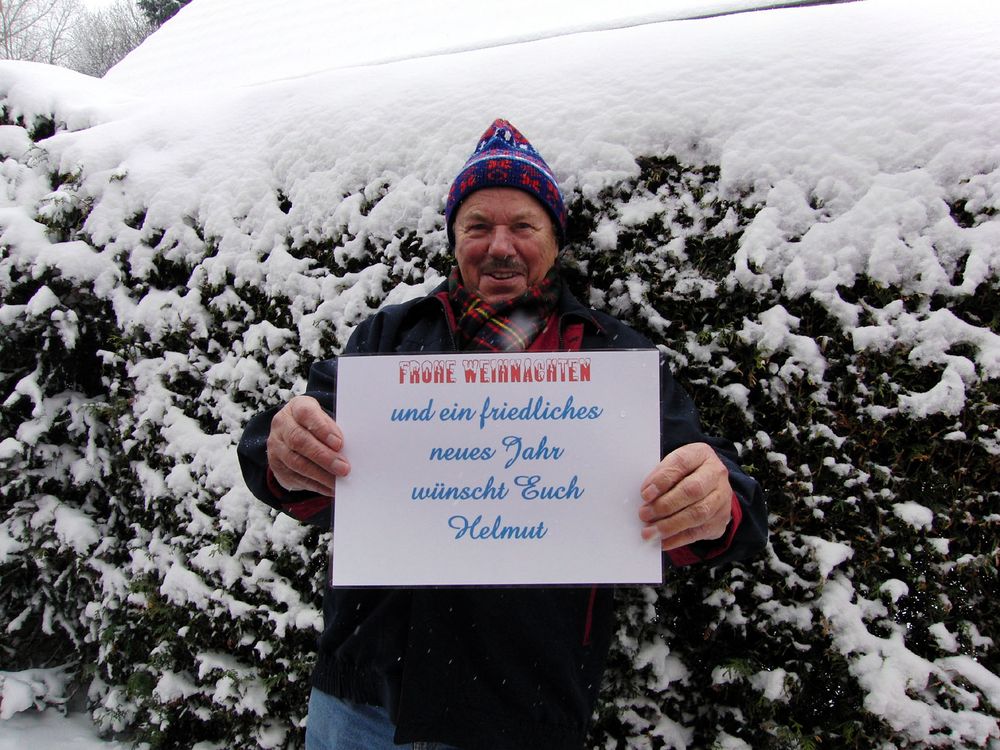 FROHE WEIHNACHTEN
und ein friedliches
neues Jahr
wünscht Euch
Helmut